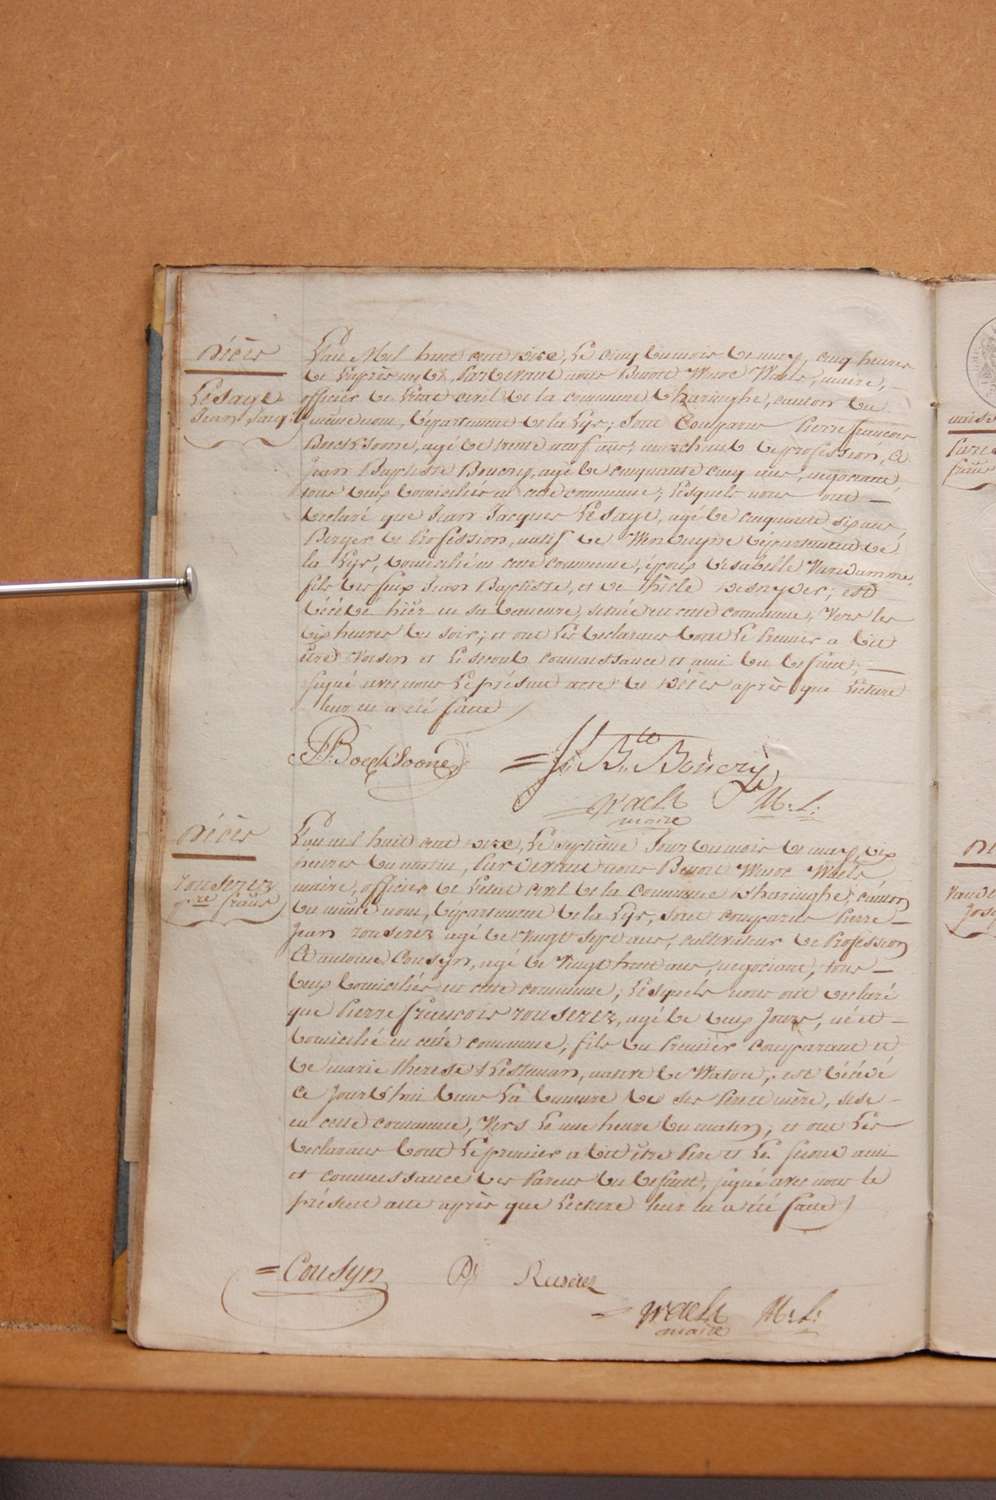 Décès
Le Saye
Jean Jacq:
L'an Mil huit cent onze, Le cinq du mois de may, cinq heures
de L'après midi, Pardevant nous Benoit Winoc Waels, maire,
officier de L'état civil de la commune d'haringhe, canton du
même nom, département de la Lys; Sont Comparus Pierre francois
Boecksoone, agé de trente neuf ans, marchand de profession, Et
Jean Baptiste Boucry, agé de cinquante cinq ans, negociant,
tous deux domiciliés en cette commune; Lesquels nous ont
declaré que Jean Jacques Le Saye, agé de cinquante six ans,
Berger de Profession, natif de département de
la Lys, domicilié en cette commune, époux d'Isabelle Vandamme,
fils des feux Jean Baptiste, et de Desnyder; est
décédé hièr en sa demeure, située en cette commune, Vers les
dix heures du soir; et ont Les declarans dont Le Premier a dit
être Voisin et Le second connaissance et ami du défunt,
signé avec nous Le présent acte de Décès après que Lecture
leur en a été faite
PF Boecksoone
J: Bte Boucry
W Waels M:L:
maire
Décès
Rouserez
pre frans
L'an mil huit cent onze, Le septième Jour du mois de may dix
heures du matin, Pardevant nous Benoit Winoc Waels
maire, officier de L'état civil de la Commune d'haringhe, canton
du même nom, département de la Lys, Sont comparus Pierre
Jean Rouserez agé de Vingt Sept ans, cultivateur de Profession
Et antoine Cousyn, agé de Vingt huit ans, negociant, tous
deux domiciliés en cette commune, Lesquels nous ont declaré
que Pierre francois Rouserez, agé de deux Jours, né et
domicilié en cette commune, fils du Premièr comparant et
de marie therese, native de Watou, est décédé
ce Jourd'hui dans La demeure de ses Pere et mère, sise
en cette commune, Vers Le une heure du matin; et ont Les
declarans dont Le premier a dit être Pere et Le second ami
et connaissance des Parens du defunt, signé avec nous le
présent acte après que Lecture leur en a été faite
Cousyn
W Waels M:L:
maire